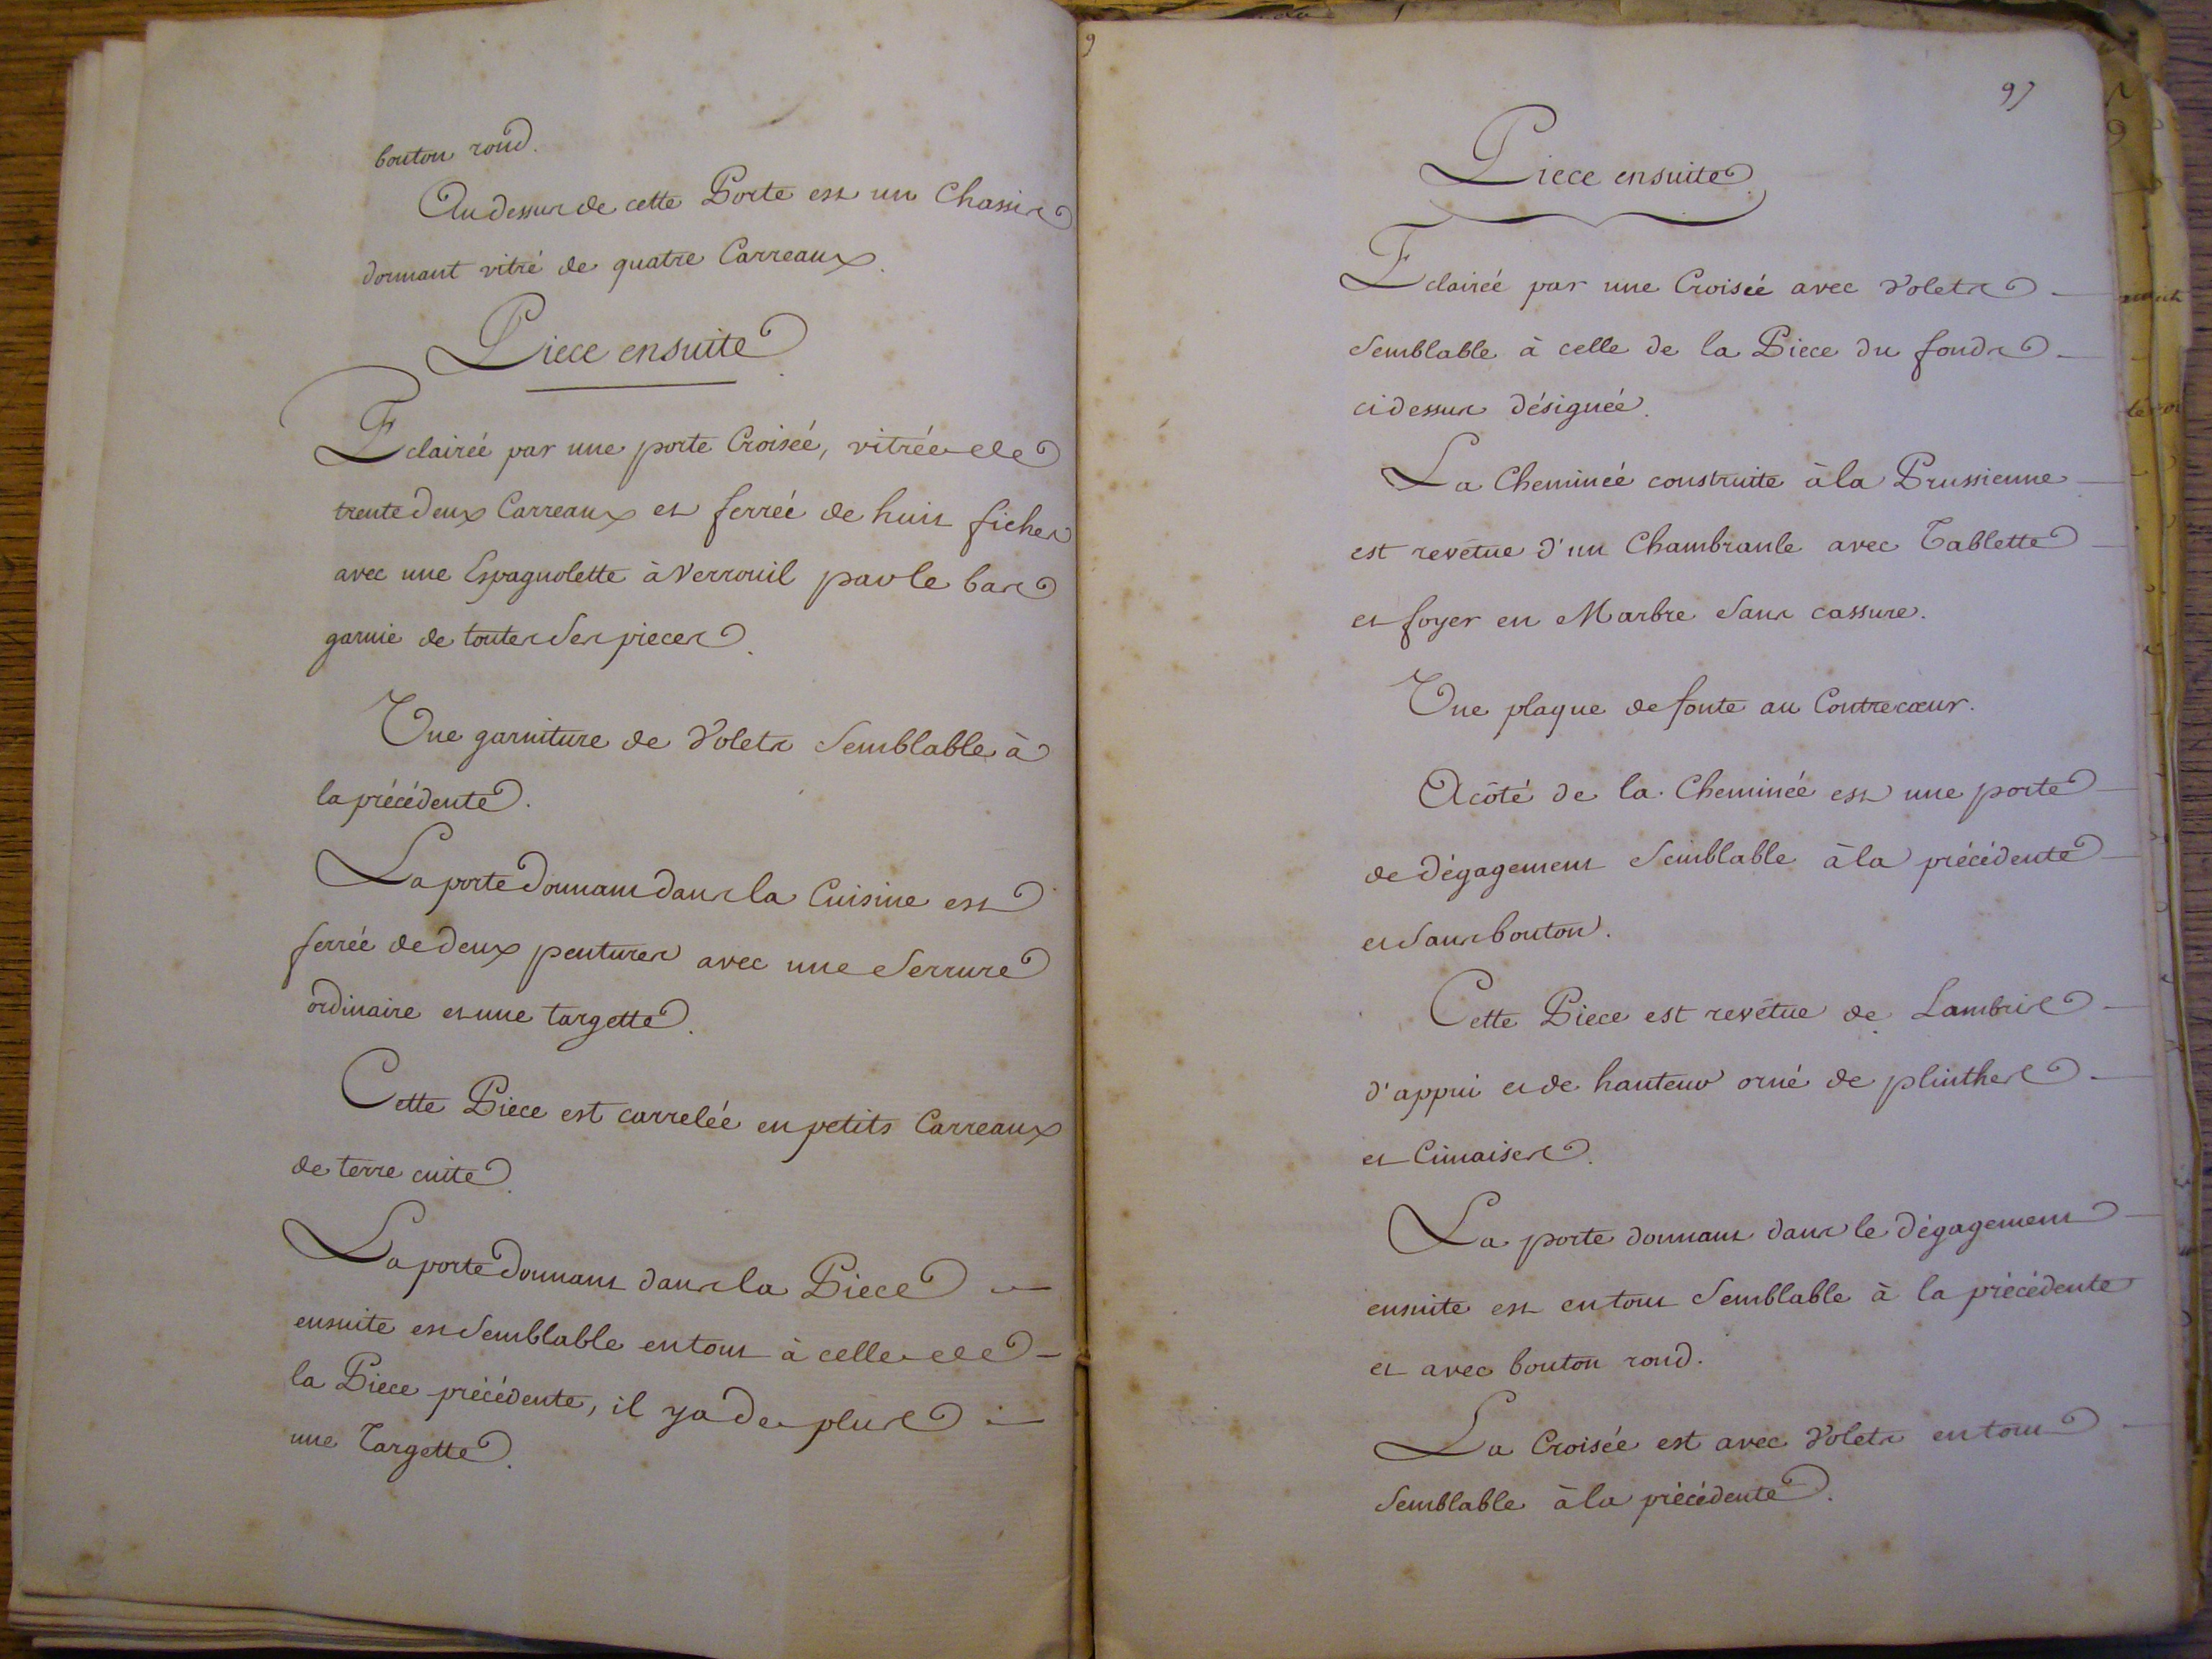 bouton rond.
Au dessus de cette Porte est un Chassis
dormant vitré de quatre Carreaux.
Piece ensuite
Eclairéé par une porte Croiséé, vitréé de
trente deux Carreaux et ferréé de huit fiches
avec une Espagnolette à Verrouil par le bas
garnie de toutes Ses pieces.
Une garniture de Volets Semblable à
la précédente.
La porte donnant dans la Cuisine est
ferréé de deux pentures avec une Serrure
ordinaire et une targette.
Cette Piece est carreléé en petits Carreaux
de terre cuite.
La porte donnant dans la Piece
ensuite est Semblable en tout à celle de
la Piece précédente, il y a de plus
une Targette.
97
Piece ensuite.
Eclairéé par une Croiséé avec Volets
Semblable à celle de la Piece du fonds
ci dessus désignéé.
La Cheminéé construite à la Prussienne
est revetue d'un Chambranle avec Tablette
et foyer en Marbre Sans cassure.
Une plaque de fonte au Contrecœur.
A côté de la Cheminéé est une porte
de dégagement Semblable à la précédente
et Sans bouton.
Cette Piece est revêtue de Lambris
d'appui et de hauteur orné de plinthes
et Cimaises.
La porte donnant dans le dégagement
ensuite est en tout Semblable à la précédente
et avec bouton rond.
La Croiséé est avec Volets en tout
Semblable à la précédente.